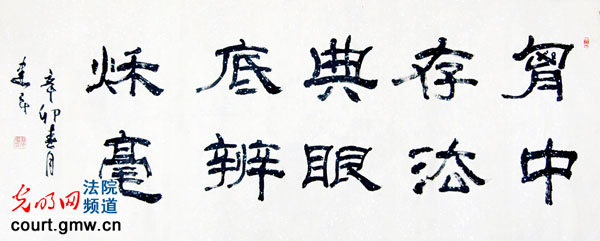 胷中
存法
典眼
底辨
秌毫
辛卯春月
光明网
法院
频道
court.gmw.cn